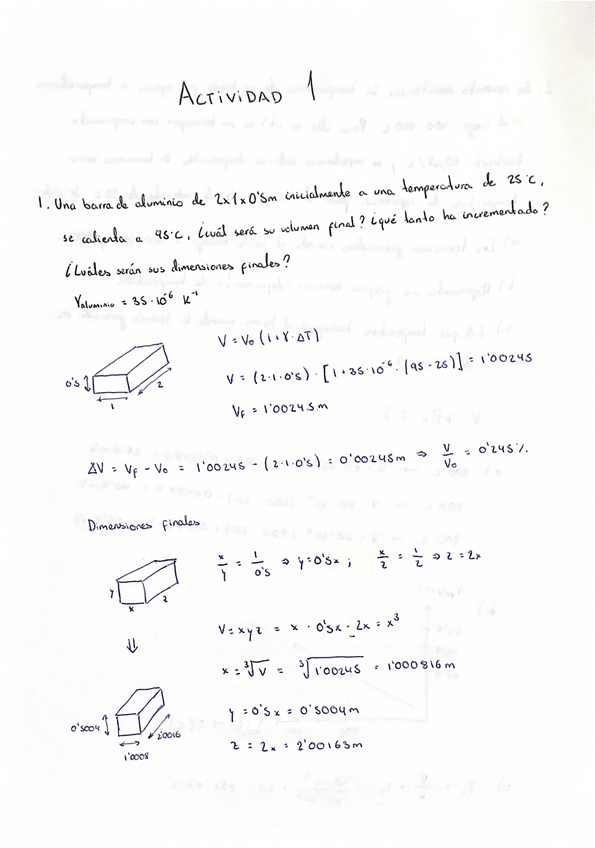 ACTIVIDAD 1
1. Una barra de aluminio de 2x1x0'5m inicialmente a una temperatura de 25°C,
se calienta a 95°C, ¿cuál será su volumen final? ¿qué tanto ha incrementado?
¿Cuáles serán sus dimensiones finales?
γaluminio = 35·10⁻⁶ K⁻¹
V = V₀ (1+γ·ΔT)
0's
1
2
V = (2·1·0's) · [1+35·10⁻⁶·(95-25)] = 1'00245
Vf = 1'00245m
ΔV = Vf - V₀ = 1'00245 - (2·1·0's) = 0'00245m ⇒ V/V₀ = 0'245%
Dimensiones finales
x/y = 1/0's ⇒ y=0'5x ; x/z = 1/2 ⇒ z=2x
y
x
z
V = xyz = x · 0'5x · 2x = x³
⇓
x = ³√V = ³√1'00245 = 1'000816m
0'5004
2'0016
1'0008
y = 0'5x = 0'5004m
z = 2x = 2'00163m